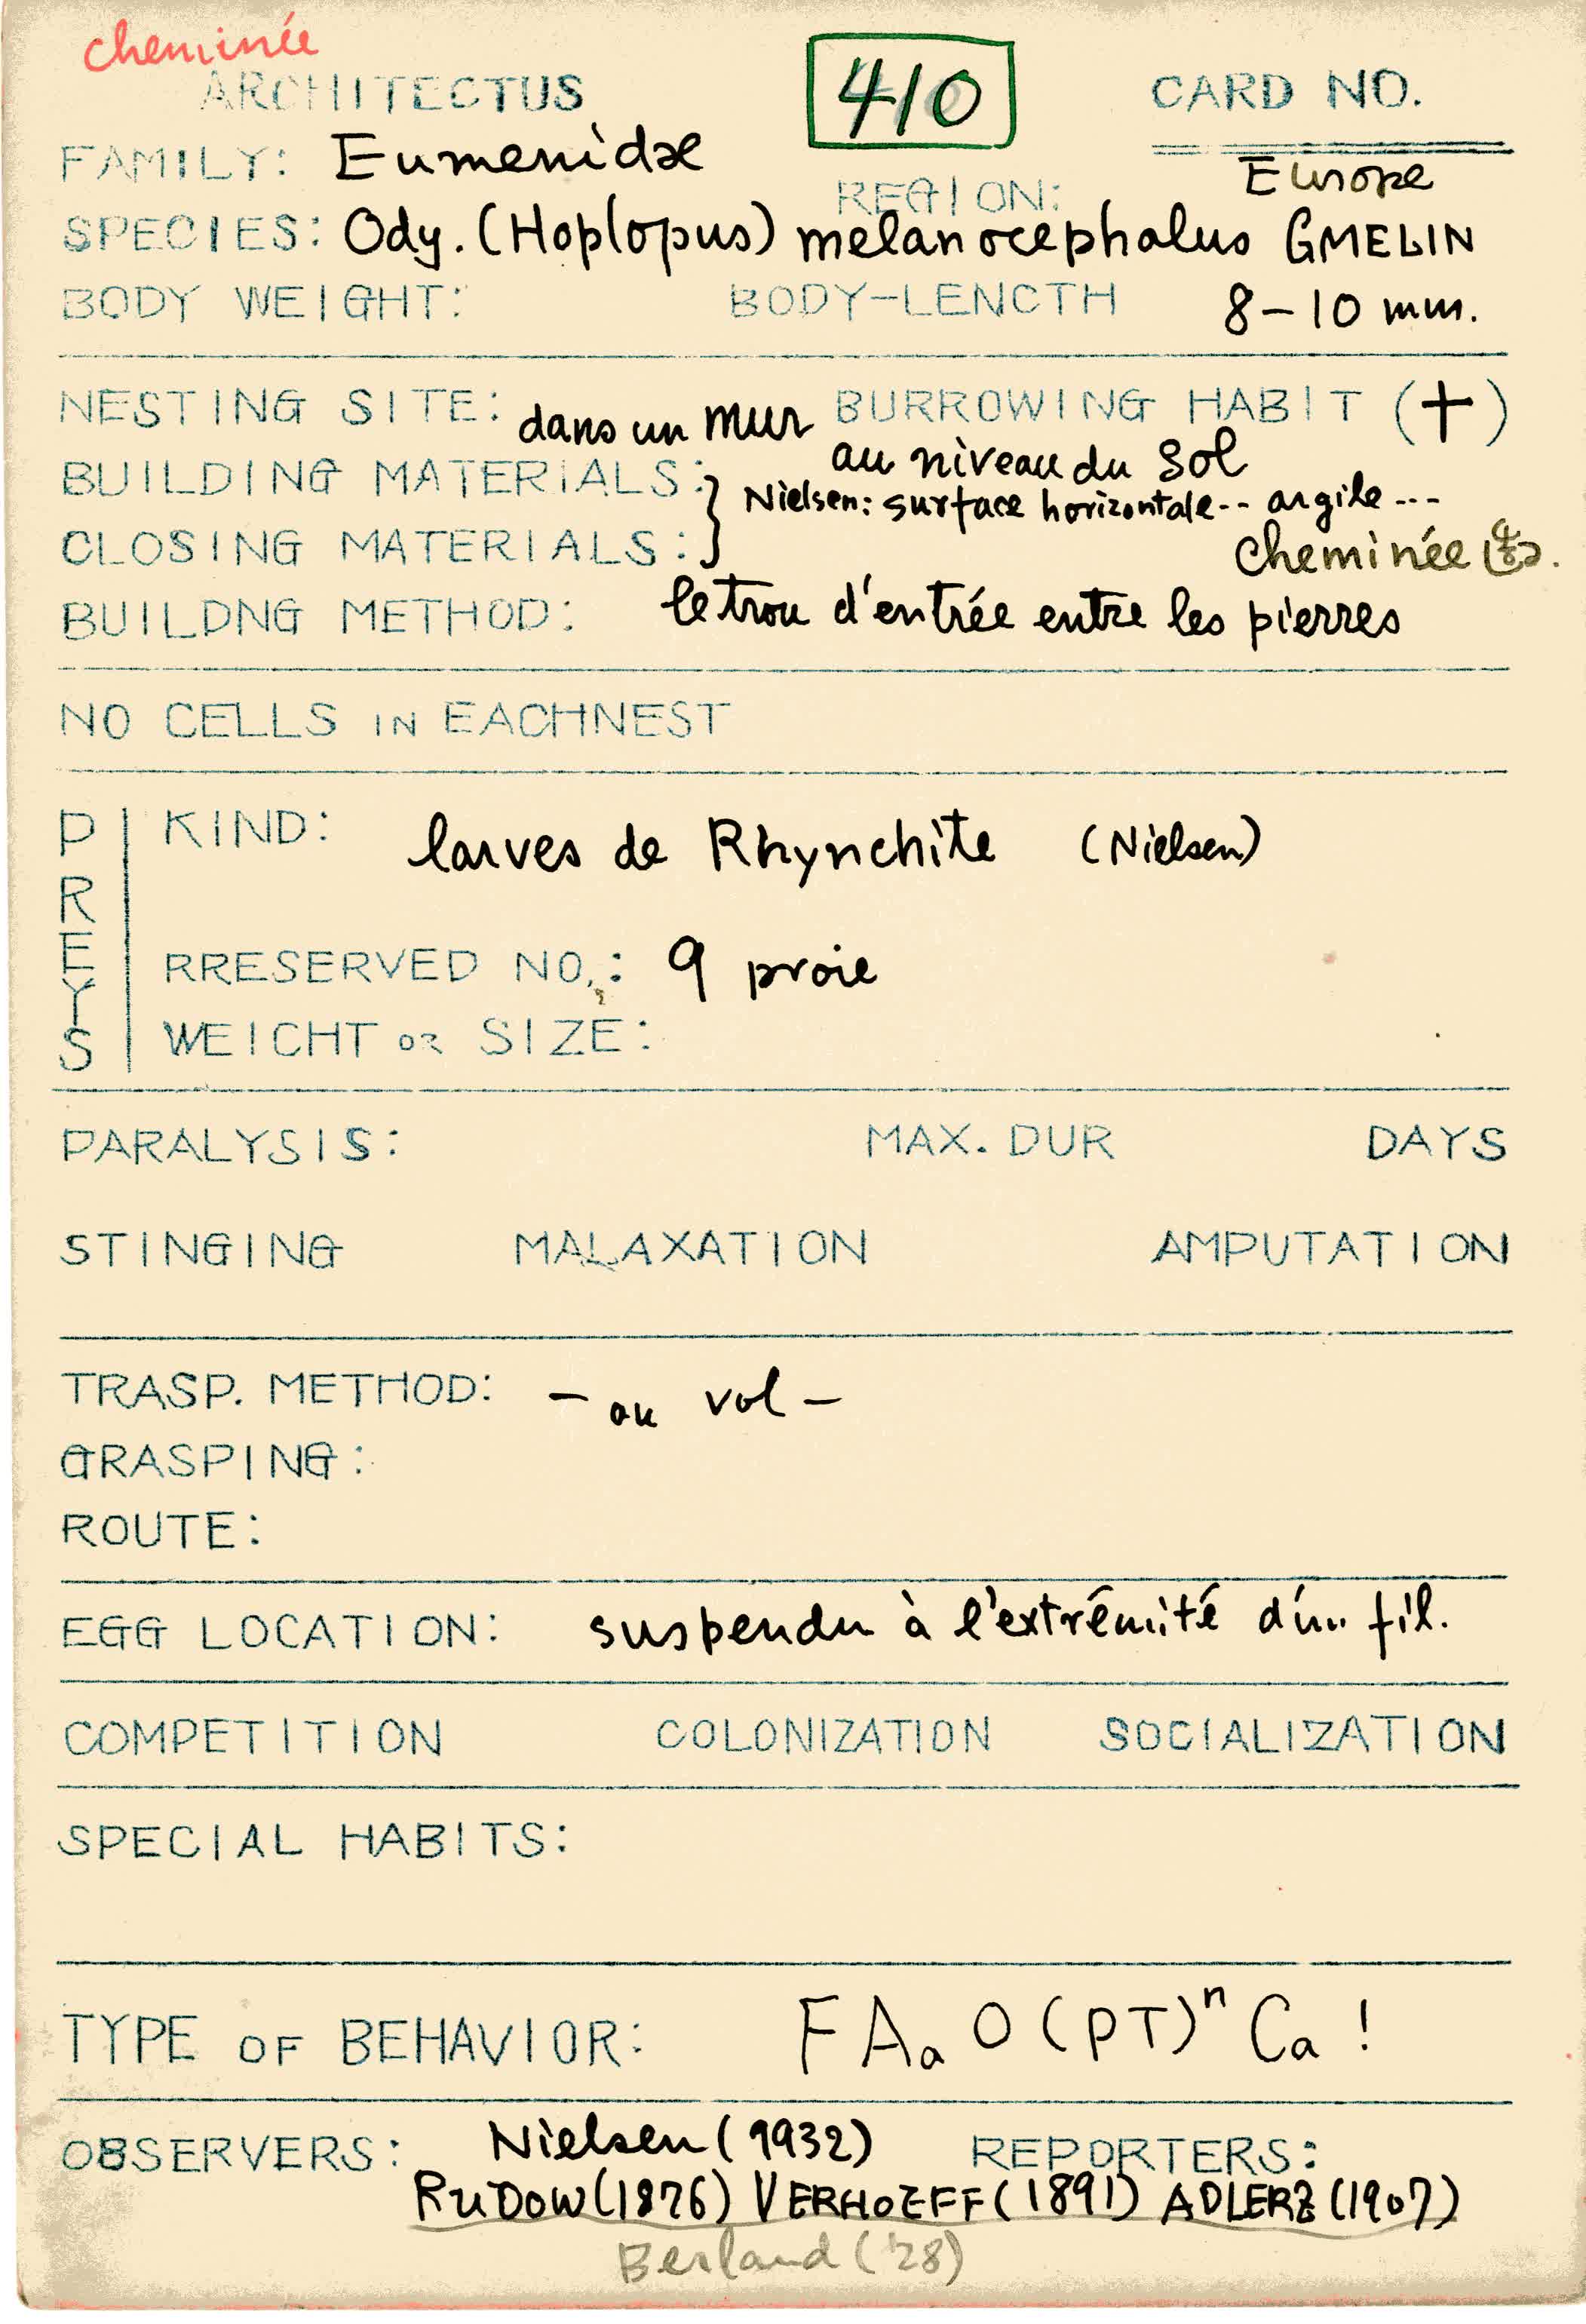 cheminée
ARCHITECTUS 410 CARD NO.
FAMILY: Eumenidæ REGION: Europe
SPECIES: Ody. (Hoplopus) melanocephalus GMELIN
BODY WEIGHT: BODY-LENCTH 8-10 mm.
NESTING SITE: dans un mur BURROWING HABIT (+)
au niveau du sol
BUILDING MATERIALS: } Nielsen: surface horizontale-- argile ---
CLOSING MATERIALS: cheminée
BUILDNG METHOD: le trou d'entrée entre les pierres
NO CELLS IN EACHNEST
PREYS
KIND: larves de Rhynchite (Nielsen)
RRESERVED NO.: 9 proie
WEICHT OR SIZE:
PARALYSIS: MAX. DUR DAYS
STINGING MALAXATION AMPUTATION
TRASP. METHOD: - au vol -
GRASPING:
ROUTE:
EGG LOCATION: suspendu à l'extrémité d'un fil.
COMPETITION COLONIZATION SOCIALIZATION
SPECIAL HABITS:
TYPE OF BEHAVIOR: F Aa O (PT)ⁿ Ca !
OBSERVERS: Nielsen (1932) REPORTERS:
RUDOW (1876) VERHOEFF (1891) ADLERZ (1907)
Berland ('28)